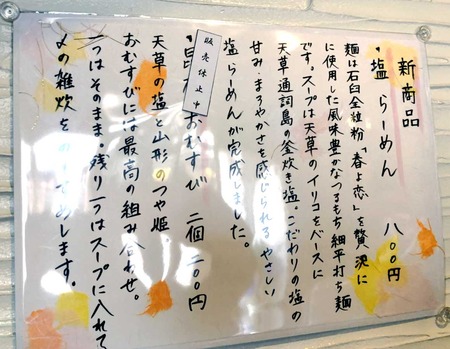 新商品
・塩 らーめん 八〇〇円
麺は石臼全粒粉「春よ恋」を贅沢に
に使用した風味豊かなつるもち細平打ち麺
です。スープは天草のイリコをベースに
天草通詞島の釜炊き塩。こだわりの塩の
甘み・まろやかさを感じられるやさしい
塩らーめんが完成しました。
販売休止中
おむすび 二個 二〇〇円
天草の塩と山形のつや姫
おむすびには最高の組み合わせ。
一つはそのまま。残り一つはスープに入れて
〆の雑炊を めします。